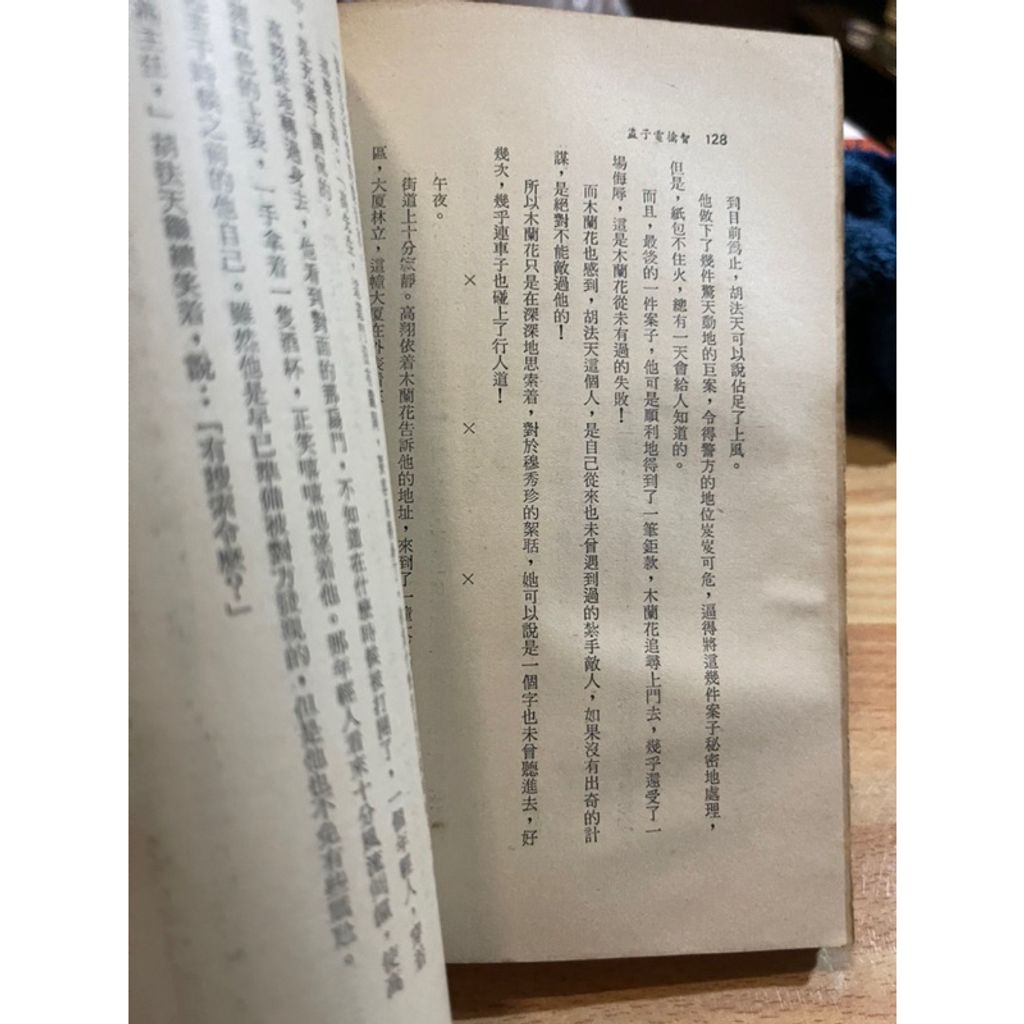 128 智擒電子盜
到目前爲止，胡法天可以說佔足了上風。
他做下了幾件驚天動地的巨案，令得警方的地位岌岌可危，逼得將這幾件案子秘密地處理，
但是，紙包不住火，總有一天會給人知道的。
而且，最後的一件案子，他可是順利地得到了一筆鉅款，木蘭花追尋上門去，幾乎還受了一
場侮辱，這是木蘭花從未有過的失敗！
而木蘭花也感到，胡法天這個人，是自己從來也未曾遇到過的紮手敵人，如果沒有出奇的計
謀，是絕對不能敵過他的！
所以木蘭花只是在深深地思索着，對於穆秀珍的絮聒，她可以說是一個字也未曾聽進去，好
幾次，幾乎連車子也碰上了行人道！
× × ×
午夜。
街道上十分寂靜。高翔依着木蘭花告訴他的地址，來到了一幢
區，大厦林立，這幢大厦在外表看
高翔陡地轉過身去，他看到對面的那扇門，不知道在什麼時候被打開了，一個年輕人，穿着
紅色的上裝，一手拿着一隻酒杯，正笑嘻嘻地望着他。那年輕人看來十分風流
的他自己。雖然他是早已準備被對方發現的，但是他也不免有些尷尬。
」胡法天繼續笑着，說：「有搜索令麼？」